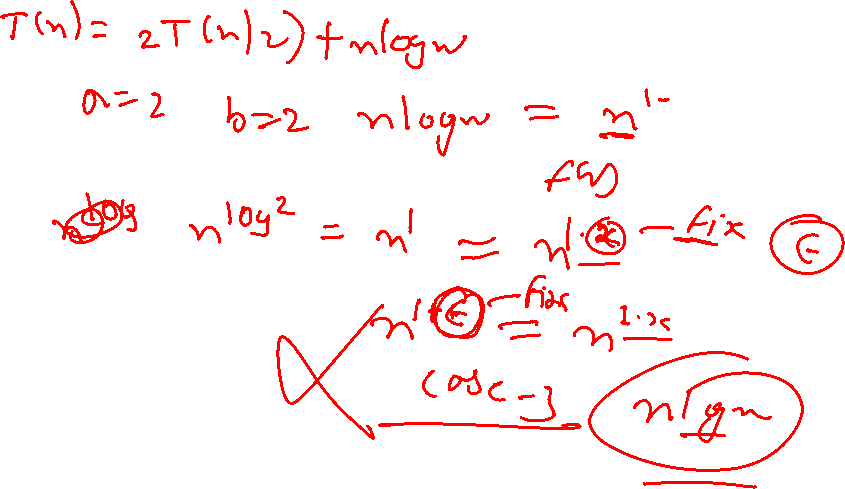 T(n) = 2T(n/2) + nlogn
a=2 b=2 nlogn = n^1-
f(n)
n^log2 = n^1 = n^1.x - fix ϵ
n^1+ϵ - fix = n^1.x
case-3 nlgn